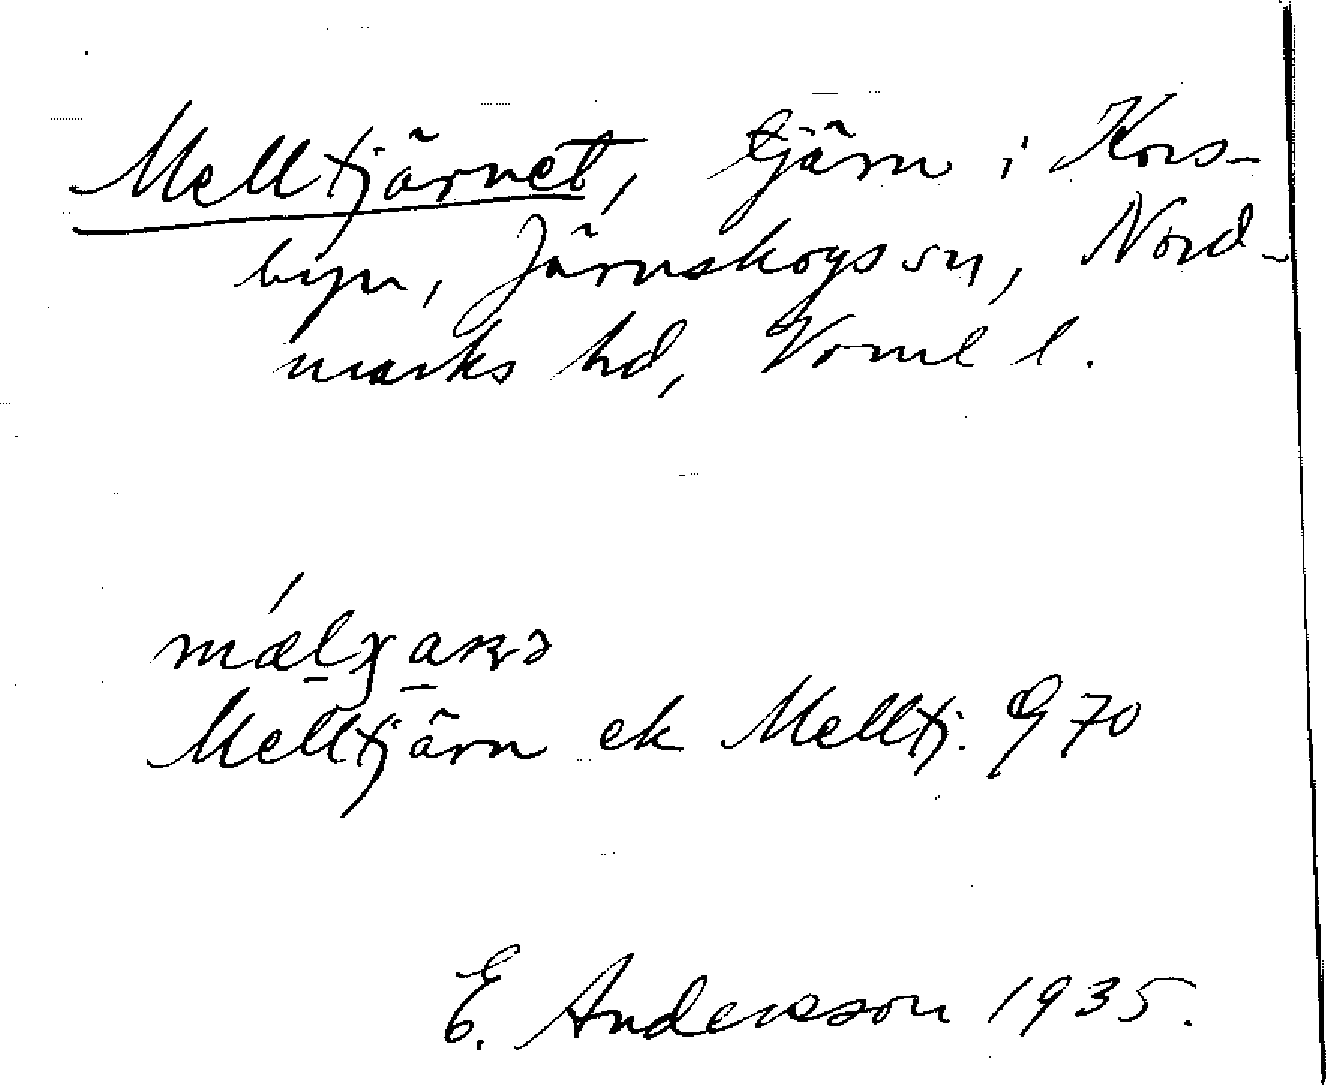 Melltjärnet, tjärn i Kors-
byn, Järnskogs sn, Nord-
marks hd, Värml l.
Melltjärn ek Melltj. 970
E. Andersson 1935.